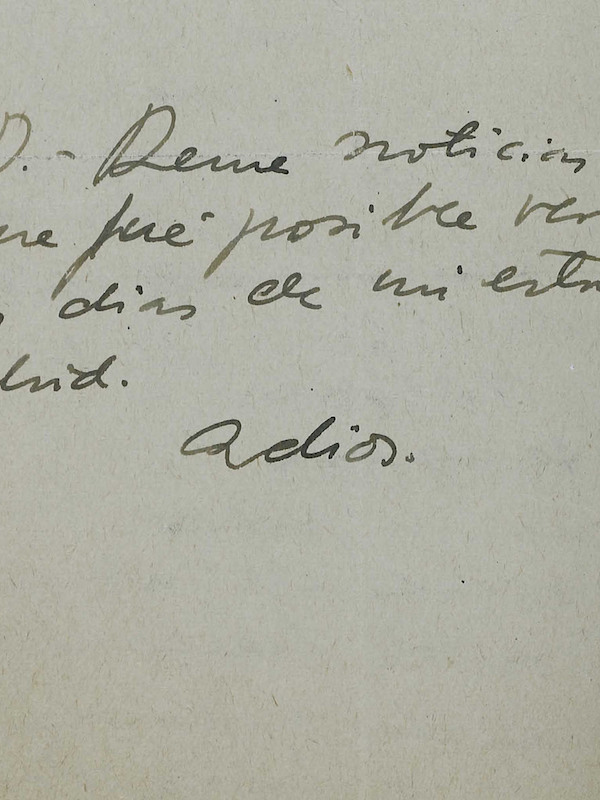 D.- Deme noticias
ue fué posible ver
s dias de mi esta
drid.
Adios.